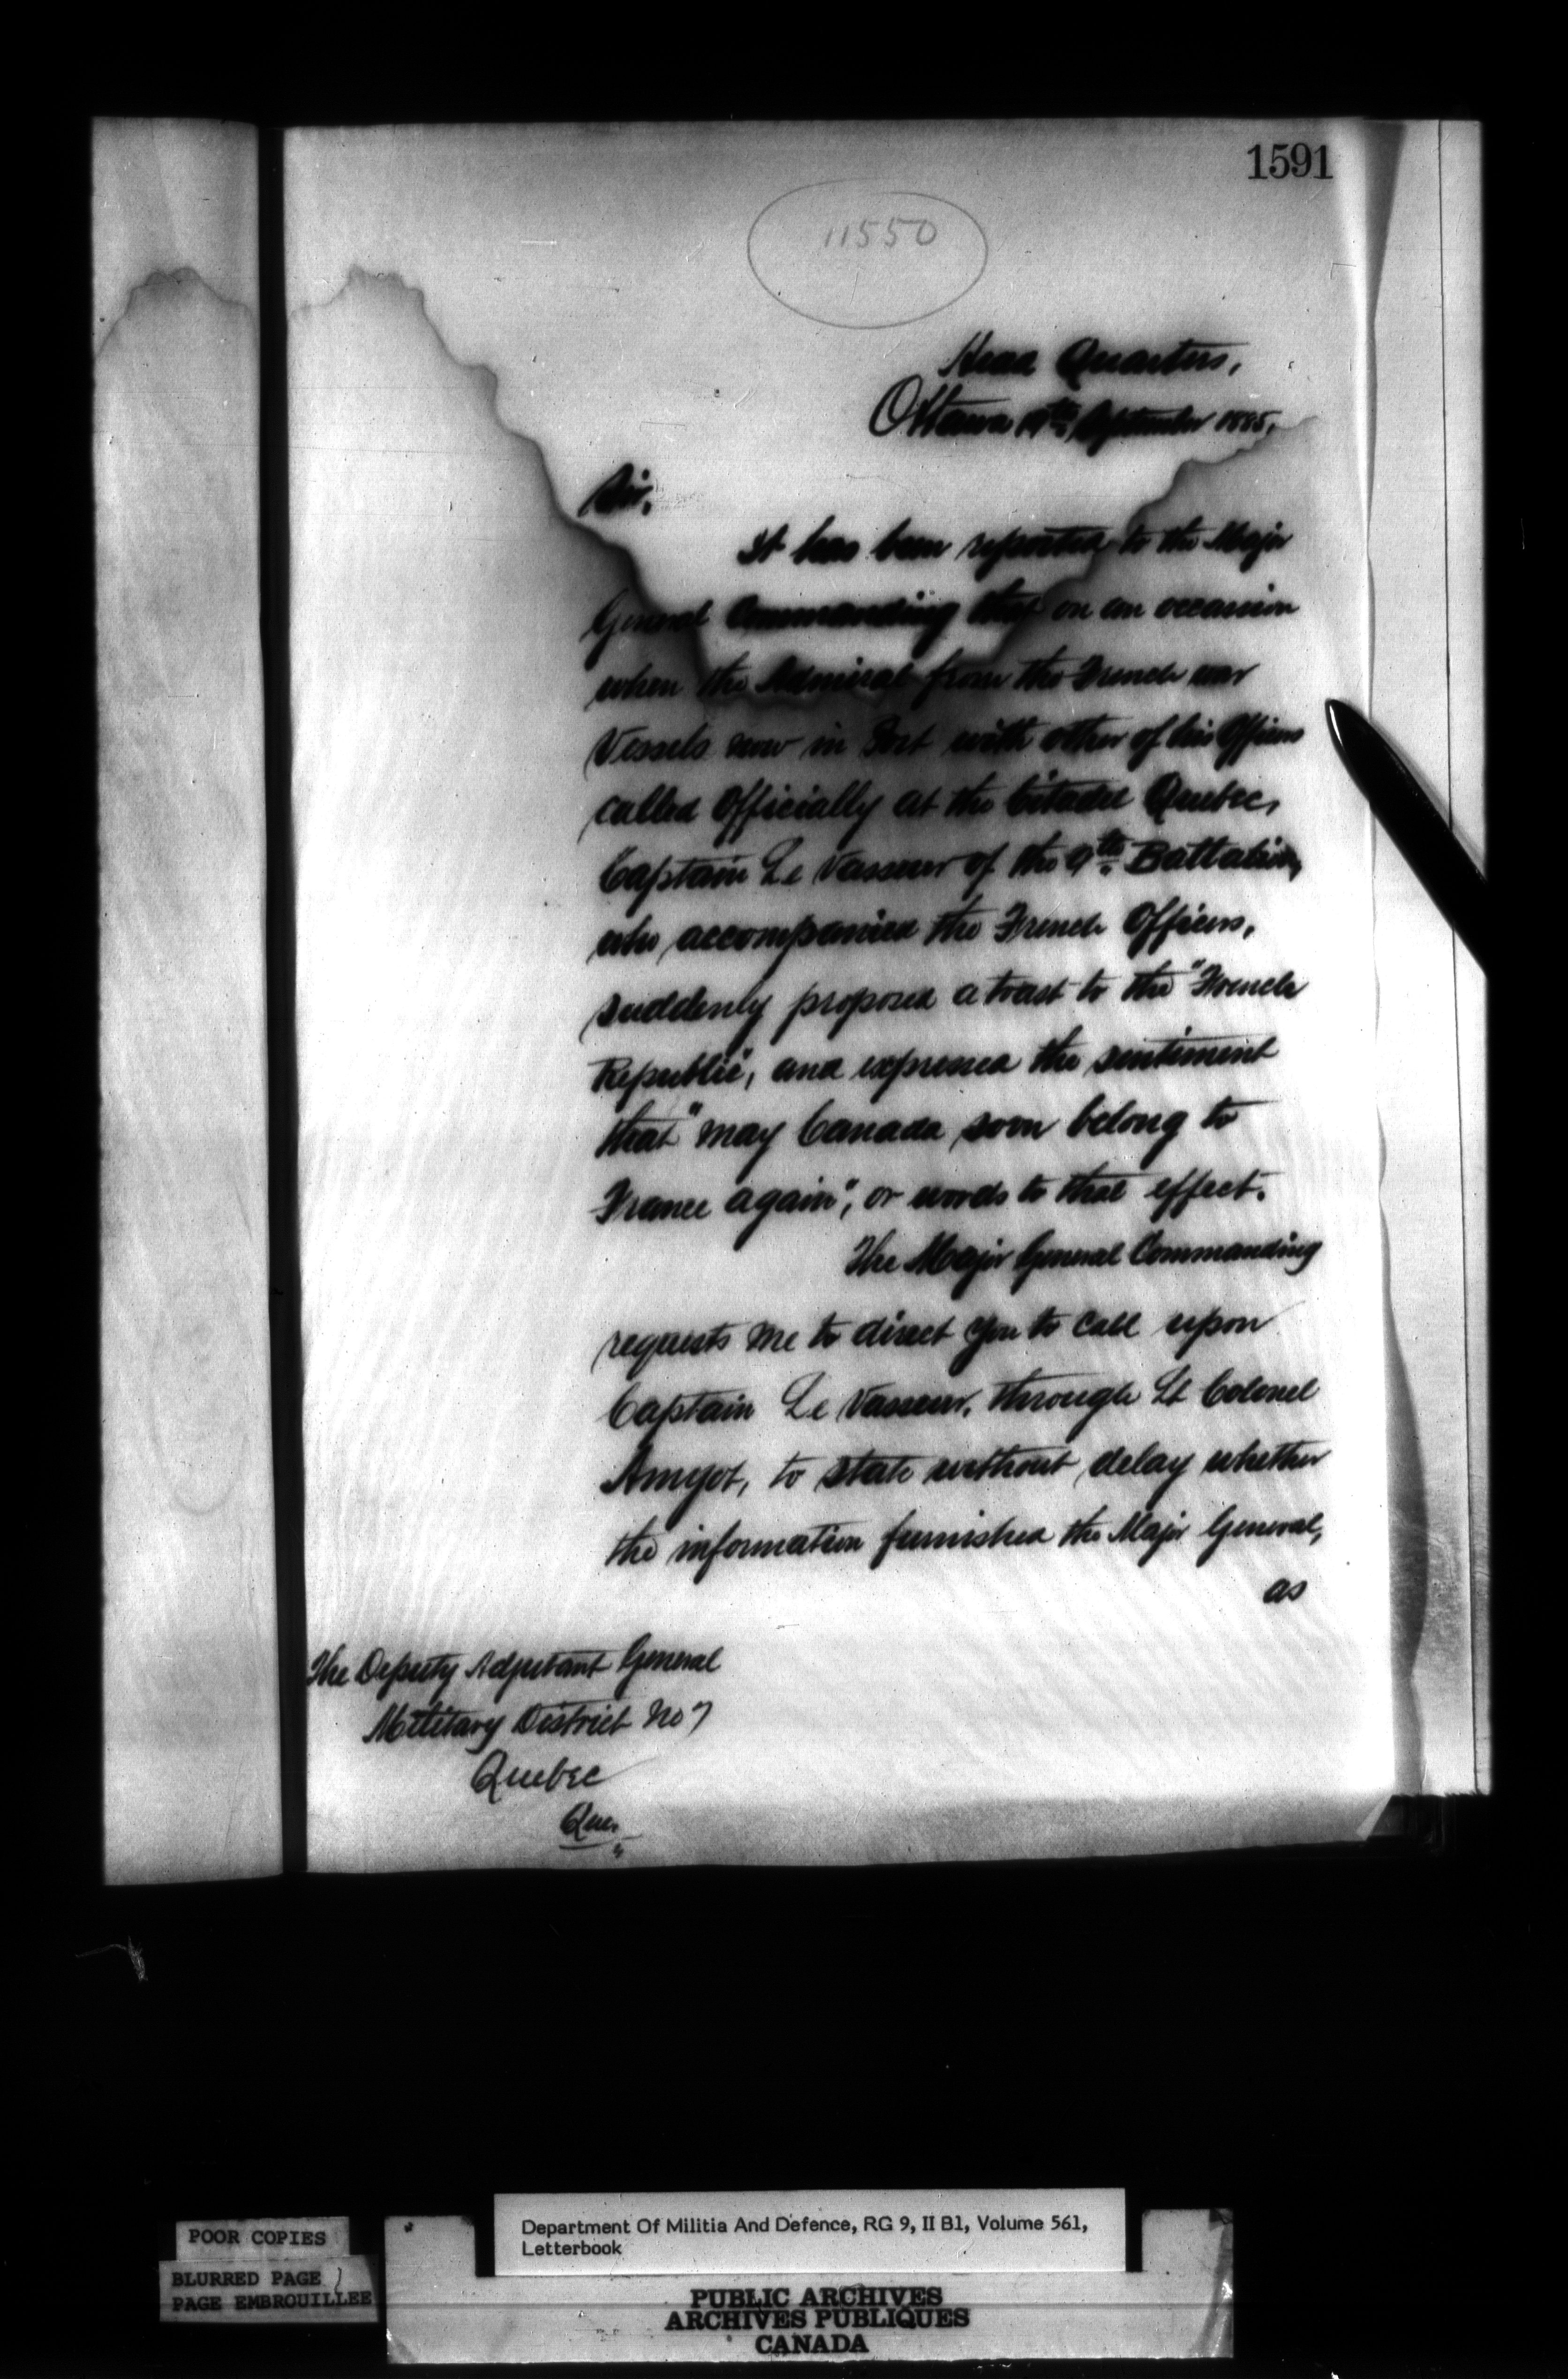 1591
11550
Head Quarters,
Ottawa September 1885.
Sir,
It has been reported to the Major
General Commanding that on an occasion
when the Admiral from the French war
Vessels now in Port with other of his Officers
called Officially at the Citadel Quebec,
Captain Le Vasseur of the 9th. Battalion,
who accompanied the French Officers,
suddenly proposed a toast to the "French
Republic", and expressed the sentiment
that "may Canada soon belong to
France again", or words to that effect.
The Major General Commanding
requests me to direct you to call upon
Captain Le Vasseur, through Lt Colonel
Amyot, to state without delay whether
the information furnished the Major General,
as
The Deputy Adjutant General
Military District No 7
Quebec
Que.
POOR COPIES
BLURRED PAGE
PAGE EMBROUILLEE
Department Of Militia And Defence, RG 9, II B1, Volume 561,
Letterbook
PUBLIC ARCHIVES
ARCHIVES PUBLIQUES
CANADA